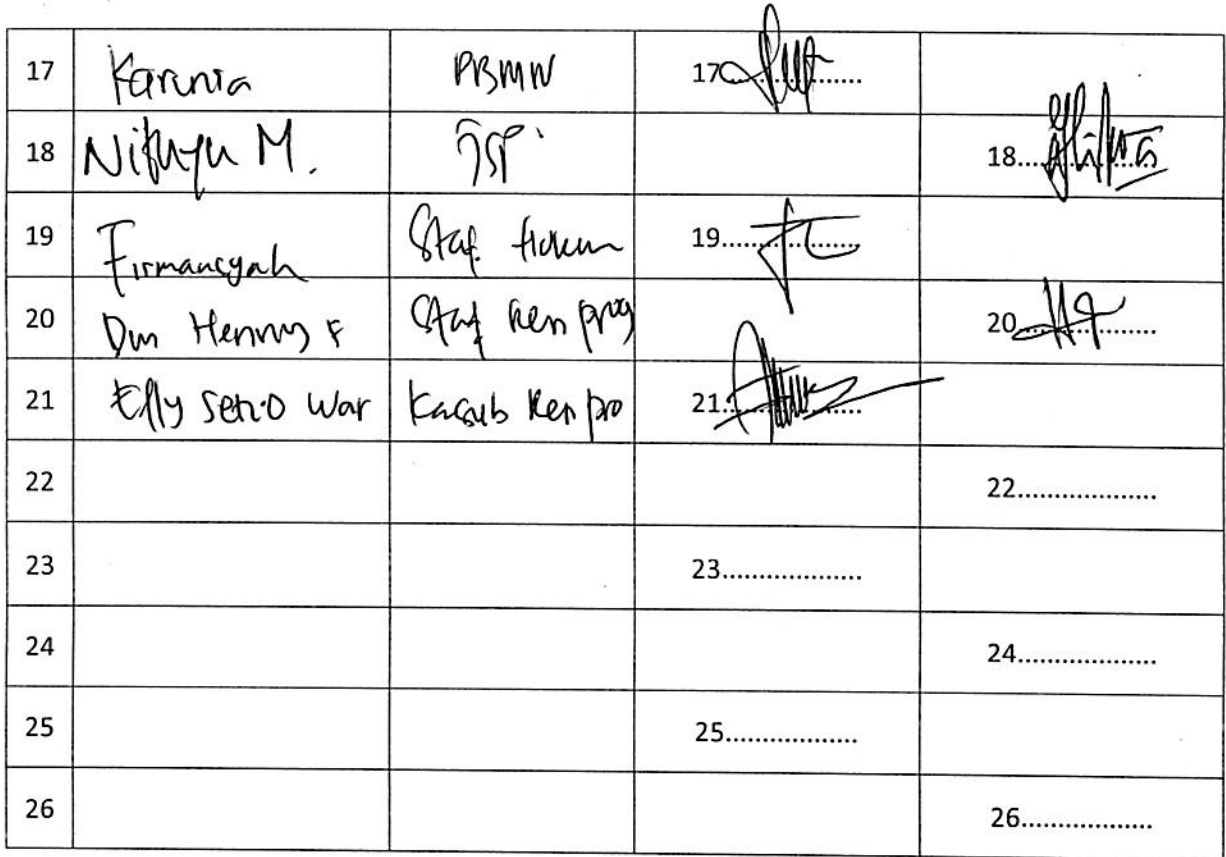 17 Karunia PBMN 17
18 Nifuyu M. JSP. 18
19 Firmansyah Staf Hukum 19
20 Henny F Staf Ren prog 20
21 Elly Setio War Kasub Ren pro 21
22 22
23 23
24 24
25 25
26 26